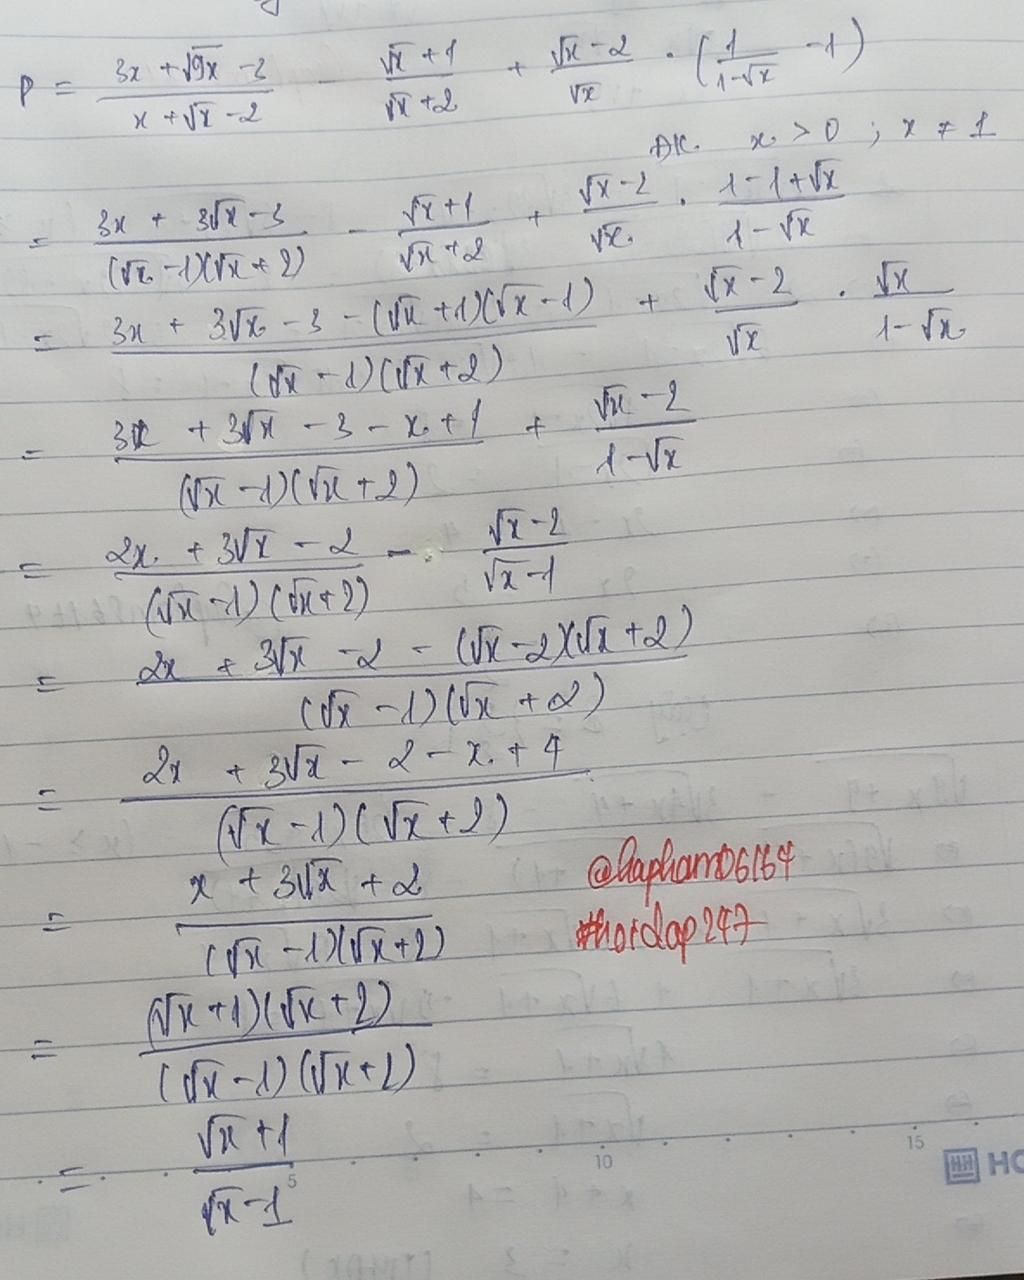 P = (3x + √9x - 3)/(x + √x - 2) - (√x + 1)/(√x + 2) + (√x - 2)/√x · (1/(1-√x) - 1)
ĐK. x > 0 ; x ≠ 1
= (3x + 3√x - 3)/((√x - 1)(√x + 2)) - (√x + 1)/(√x + 2) + (√x - 2)/√x · (1 - 1 + √x)/(1 - √x)
= (3x + 3√x - 3 - (√x + 1)(√x - 1))/((√x - 1)(√x + 2)) + (√x - 2)/√x · √x/(1 - √x)
= (3x + 3√x - 3 - x + 1)/((√x - 1)(√x + 2)) + (√x - 2)/(1 - √x)
= (2x + 3√x - 2)/((√x - 1)(√x + 2)) - (√x - 2)/(√x - 1)
= (2x + 3√x - 2 - (√x - 2)(√x + 2))/((√x - 1)(√x + 2))
= (2x + 3√x - 2 - x + 4)/((√x - 1)(√x + 2))
= (x + 3√x + 2)/((√x - 1)(√x + 2))
@hapham06164
#hoidap247
= ((√x + 1)(√x + 2))/((√x - 1)(√x + 2))
= (√x + 1)/(√x - 1)
5 10 15
HH HO